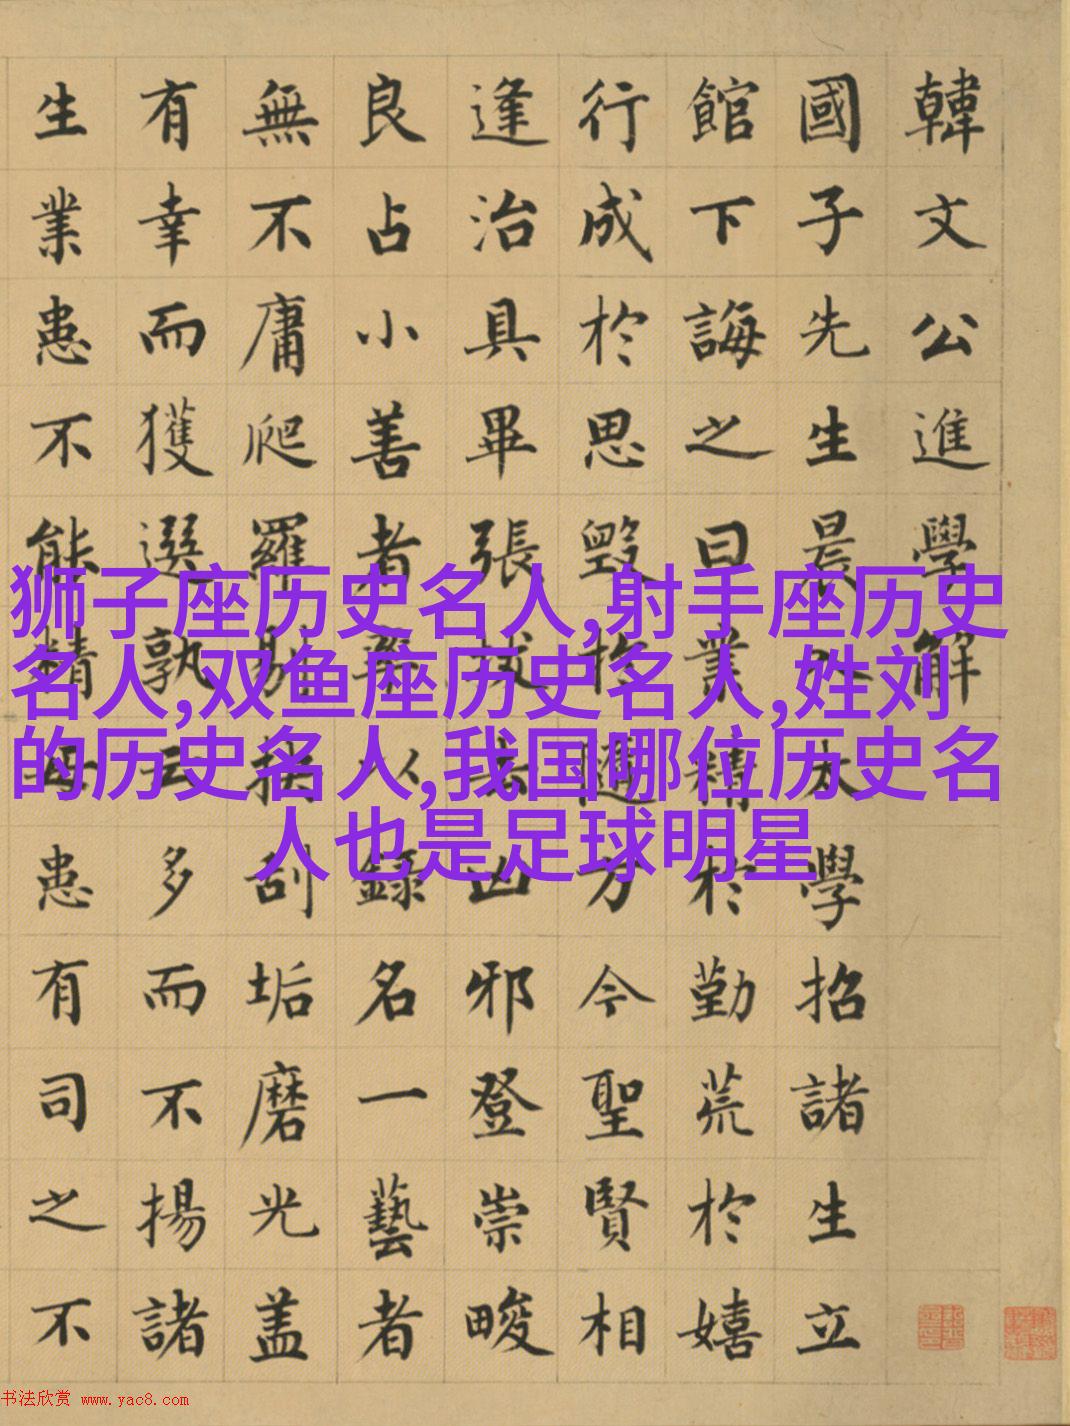 韓文公進學解
國子先生晨入太學招諸生立
館下誨之曰業精於勤荒於嬉
行成於思毀於隨方今聖賢相
逢治具畢張拔去凶邪登崇畯
良占小善者率以錄名一藝者
無不庸爬羅剔抉刮垢磨光盖
有幸而獲選孰云多而不揚諸
生業患不能精毋患有司之不
狮子座历史名人,射手座历史
名人,双鱼座历史名人,姓刘
的历史名人,我国哪位历史名
人也是足球明星
书法欣赏 www.yac8.com